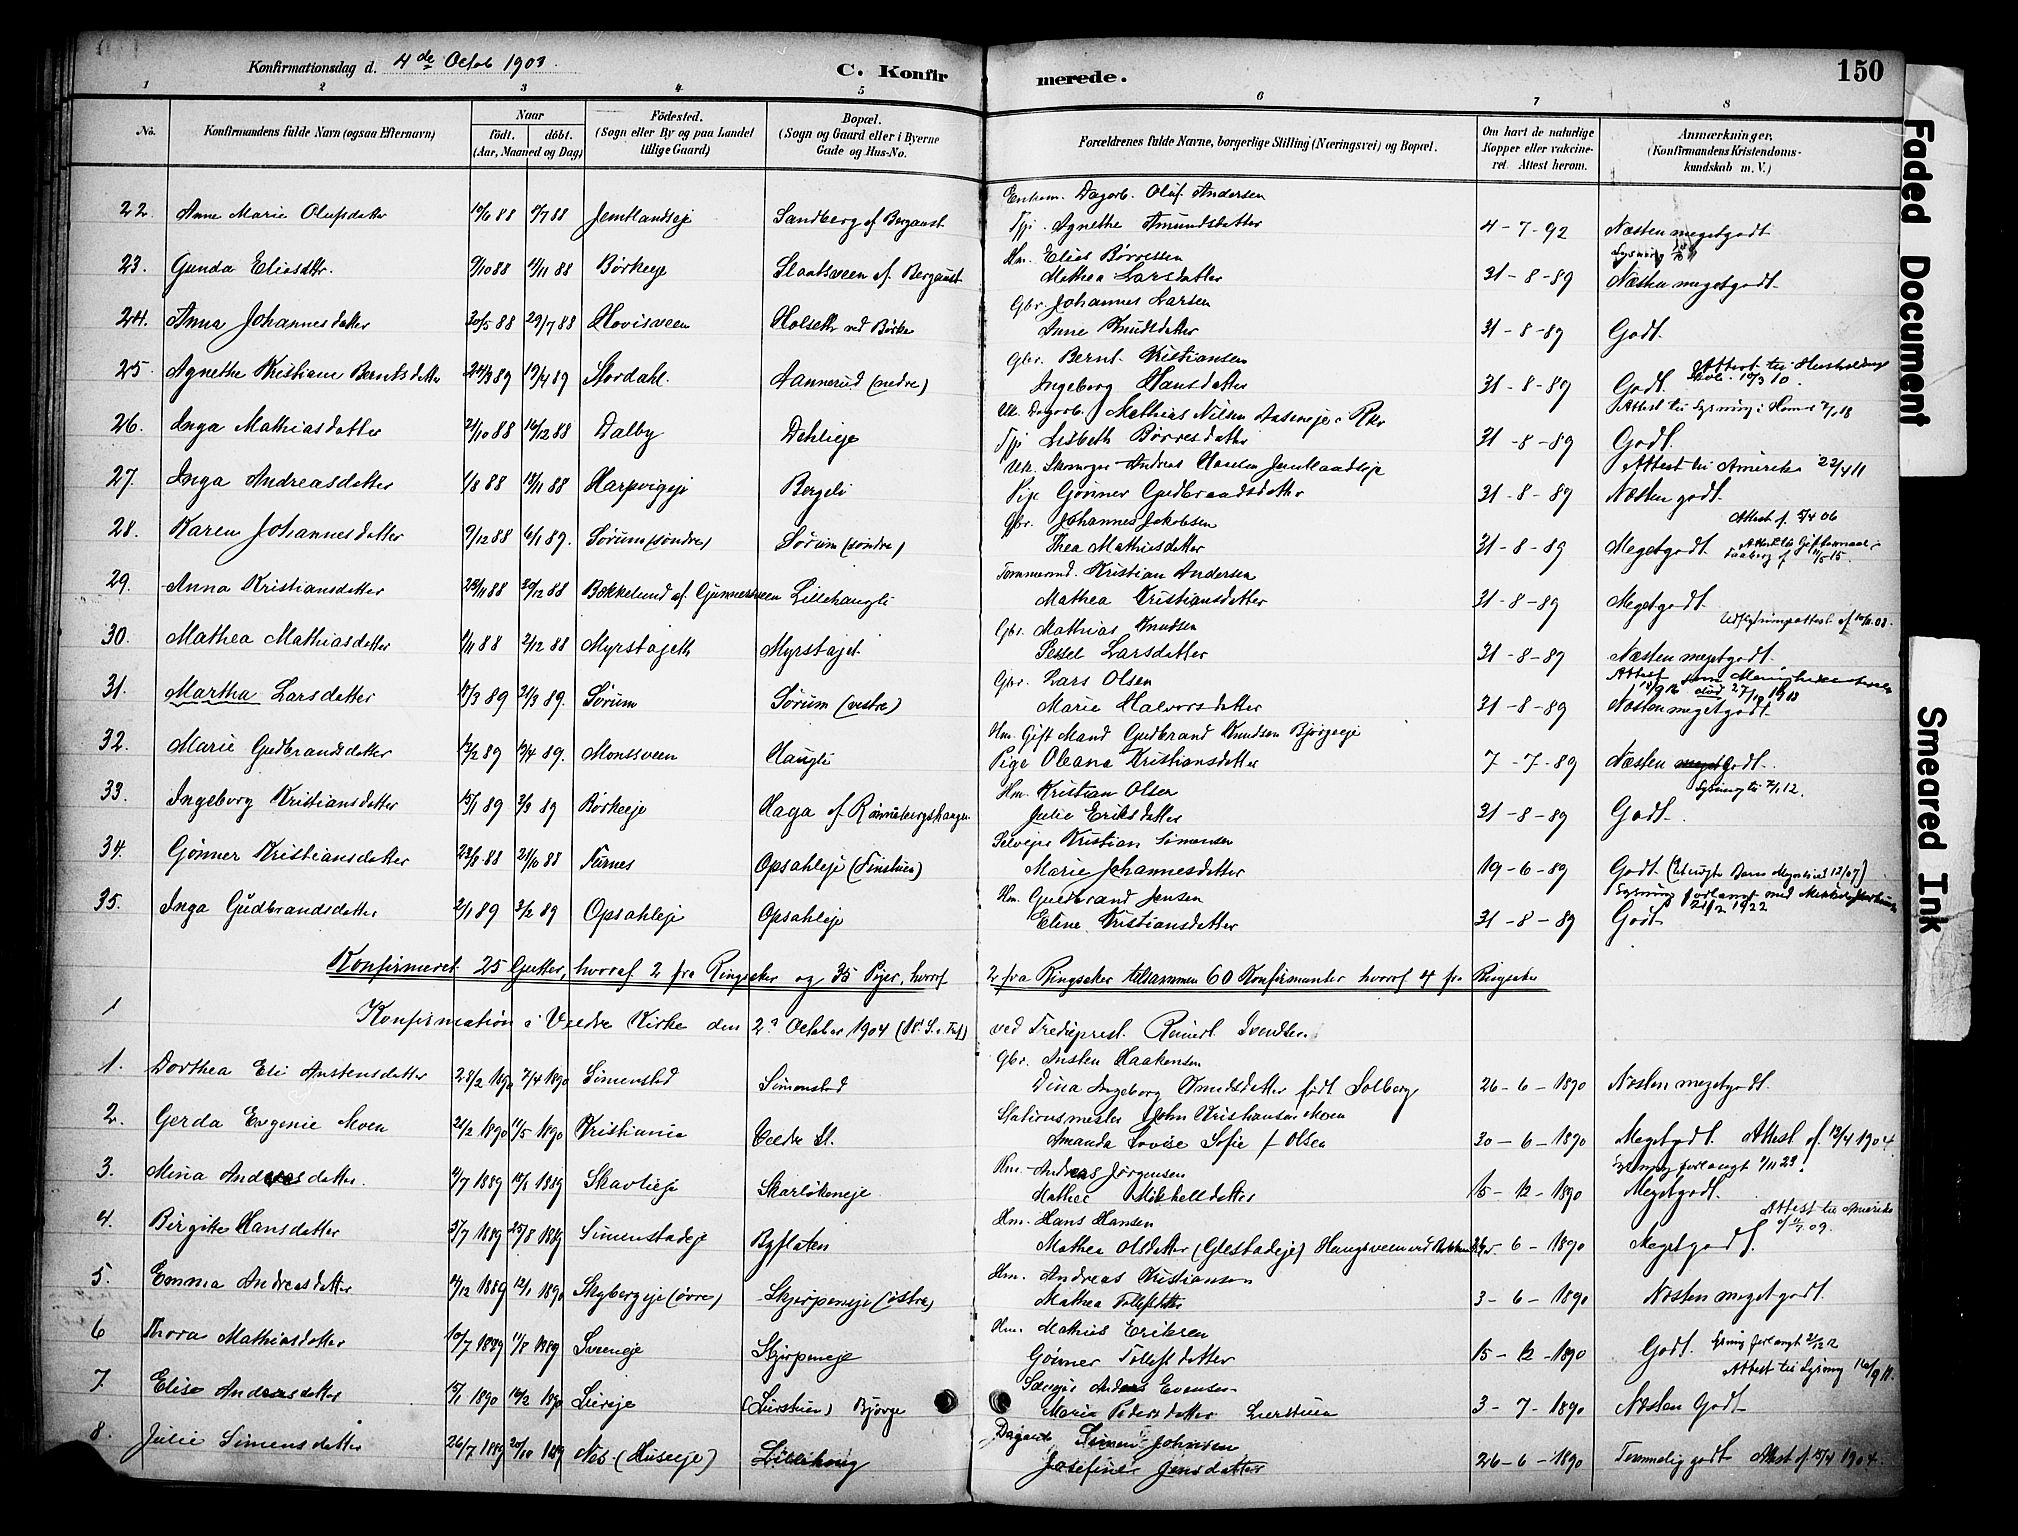 Konfirmationsdag d. 4de Octob 1903.
C. Konfirmerede.
150
1 2 3 4 5 6 7 8
No. Konfirmandens fulde Navn (ogsaa Efternavn)
Naar født. døbt. (Aar, Maaned og Dag)
Fødested. (Sogn eller By og paa Landet tillige Gaard)
Bopæl. (Sogn og Gaard eller i Byerne Gade og Hus-No.
Forældrenes fulde Navne, borgerlige Stilling (Næringsvei) og Bopæl.
Om havt de naturlige Kopper eller vakcineret. Attest herom.
Anmærkninger, (Konfirmandens Kristendomskundskab m. V.)
22. Anne Marie Olufsdatter 7/7 88 Jemtlandseje Sandberg af Bergaust Enkem. Dagarb. Oluf Andersen
Agnethe Amundsdatter 4-7-92 Næsten megetgodt
23. Gunda Eliasdtr. 9/10 88 11/11 88 Børkeeje Slaatsveen af Bergaust Hm. Elias Børressen
Mathea Larsdatter 31-8-89 Næsten megetgodt
24. Anna Johannesdatter 20/5 88 29/7 88 Hovisveen Holseth ved Børke Gbr. Johannes Larsen
Anne Knudsdatter 31-8-89 Godt.
25. Agnethe Kristiane Berntsdatter 24/3 89 19/4 89 Stordahl. Aannerud (nedre) Gbr. Bernt Kristiansen
Ingeborg Hansdatter 31-8-89 Godt.
26. Inga Mathiasdatter 21/10 88 16/12 88 Dalby Dehlieje Dagarb. Mathias Nilsen
Lisbeth Børresdatter 31-8-89 Godt.
Attest til Amerika 22/4 11
27. Inga Andreasdatter 1/8 88 Harpvigeje Bergeli Andreas Hansen Jemtlandseje
Pige Gønner Gudbrandsdatter 31-8-89 Næsten godt.
28. Karen Johannesdatter 9/12 88 6/1 89. Sørum (søndre) Sørum (søndre) Gbr. Johannes Jakobsen
Attest af 5/4 06
Thea Mathiasdatter 31-8-89 Megetgodt.
29. Anna Kristiansdatter 25/11 88 30/12 88 Bækkelund af Gunnersveen Lillehaugli Tømmermd. Kristian Andersen
Mathea Kristiansdatter 31-8-89 Megetgodt.
30. Mathea Mathiasdatter 9/11 88 2/12 88 Myrstajeth Myrstajet Gbr. Mathias Knutsen
Sessel Larsdatter 31-8-89 Næsten megetgodt.
31. Martha Larsdatter 8/3 89 21/3 89. Sørum Sørum (vestre) Gbr. Lars Olsen
Marie Halvorsdatter 31-8-89 Næsten megetgodt.
32. Marie Gudbrandsdatter 12/2 89 19/4 89. Monssveen Haugli Hm. Gift Mand Gudbrand Knudsen Bjørgeeje
Pige Oleana Kristiansdatter 7-7-89 Næsten godt.
33. Ingeborg Kristiansdatter 15/1 89 3/3 89 Børkeeje Haga af Hm. Kristian Olsen
Julie Eriksdatter 31-8-89 Godt.
34. Gønner Kristiansdatter 23/8 88 21/10 88 Furnes Opsahleje (Finstuen) Selvejer Kristian Simensen
Marie Johannesdatter 19-6-89 Godt
35. Inga Gudbrandsdatter 2/1 89 3/2 89 Opsahleje Opsahleje Hm. Gudbrand Jensen
Eline Kristiansdatter 31-8-89 Godt
21/2 1922
Konfirmeret 25 Gutter, hvoraf 2 fra Ringsaker og 35 Piger, hvoraf 2 fra Ringsaker tilsammen 60 Konfirmanter hvoraf 4 fra Ringsaker
1
Konfirmation i Veldre Kirke den 2. October 1904 ved Tredieprest. Reinert Svendsen
1. Dorthea Eli Anstensdatter 28/2 1890 7/4 1890 Simenstad Simenstad Gbr. Ansten Haakensen
Dina Ingeborg Knudsdatter født Solberg 26-6-1890 Næsten megetgodt.
2. Gerda Eugenie Moen 21/2 1890 11/5 1890 Kristiania Veldre St. Stationsmester John Kristiansen Moen
Amanda Lovise Sofie f Olsen 30-6-1890 Megetgodt. Attest af 13/4 1904.
3. Mina Andreasdatter. 4/7 1889 1889 Skavlieje Skarløkeneje Hm. Andreas Jørgensen
Mathea Mikkelsdatter 15-12-1890 Megetgodt.
4. Birgitte Hansdatter 5/7 1889 25/8 1889 Simenstadeje Byflaten Hm. Hans Hansen
Attest til Amerika
Mathea Olsdatter (Glestadeje) 6-1890 Megetgodt.
5. Emma Andreasdatter 14/12 1889 12/1 1890 Skybergeje (øvre) Skjerpeneje (østre) Hm. Andreas Kristiansen
Mathea Tollefsdatter 3-6-1890 Næsten megetgodt.
6 Thora Mathiasdatter 10/7 1889 11/8 1889 Sveeneje Skjerpeneje Hm. Mathias Eriksen
Gønner Tollefsdatter 15-12-1890 Godt.
7. Elise Andersdatter 15/1 1890 16/2 1890 Liereje (Lierstuen) Bjørge Anders Evensen
Maria Pedersdatter Lierstuen 3-7-1890 Næsten Godt
8. Julie Simensdatter 26/7 1889 20/10 1889 Nes (Huseeje) Dagarb. Simen Johnsen
Josefine Jensdatter 26-6-1890 Temmelig godt Attest af 15/4 1904.
Faded Document
Smeared Ink